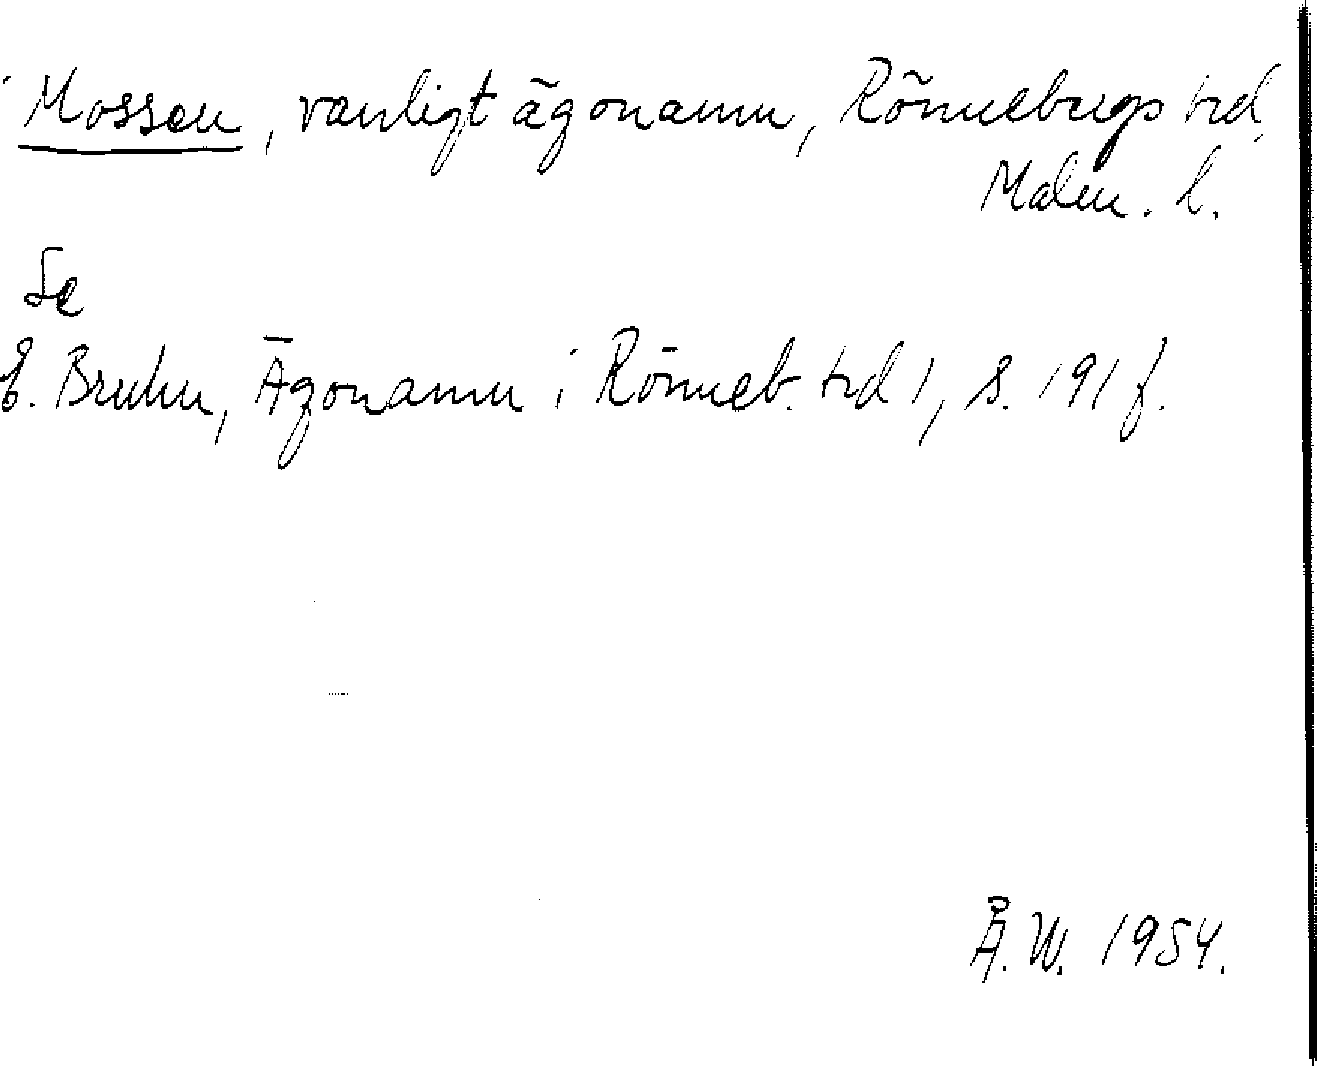 Mossen, vanligt ägonamn, Rönnebergs hd,
Malm. l.
Se
E. Bruhn, Ägonamn i Rönneb. hd 1, s. 191 f.
Å. W. 1954.